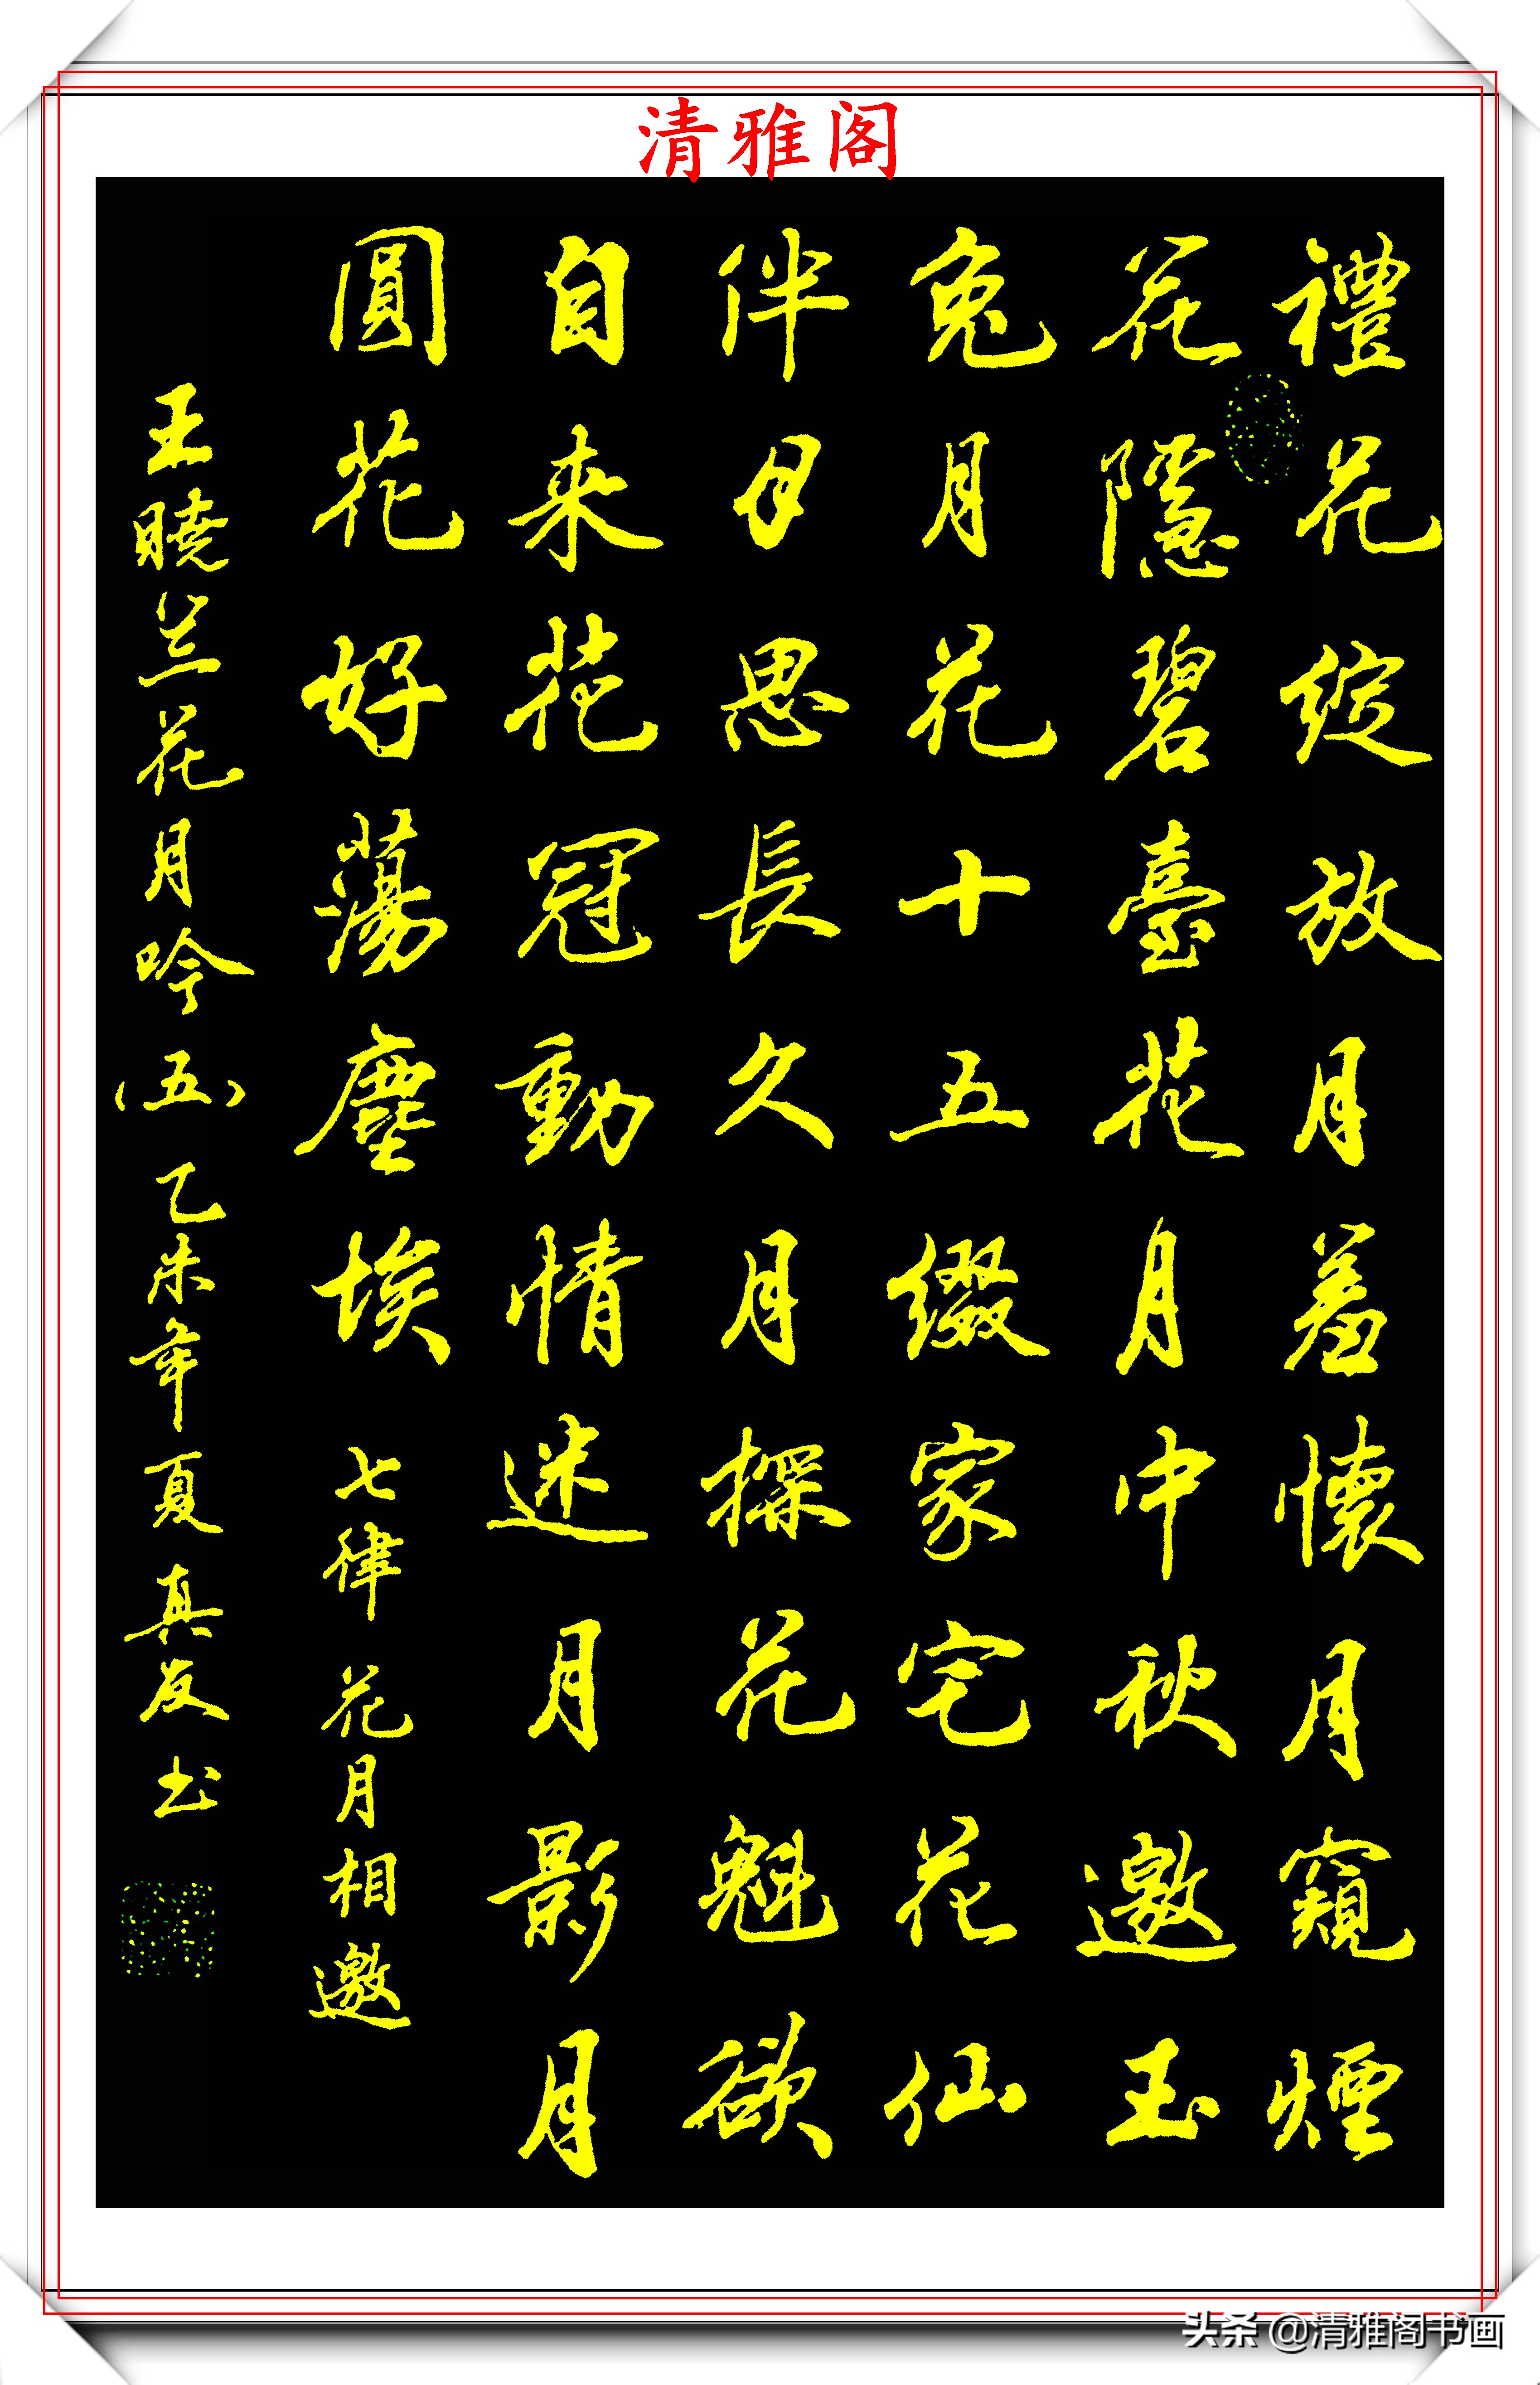 清雅阁
禮花綻放月羞懷月窺煙
花隱碧臺花月中秋邀玉
兔月花十五缀家宅花仙
伴月思長久月探花魁欲
自来花冠動情迷月影月
圓花好蕩塵埃 七律 花月相邀
王曉兰花月吟（五）乙未年夏真友书
头条 @清雅阁书画